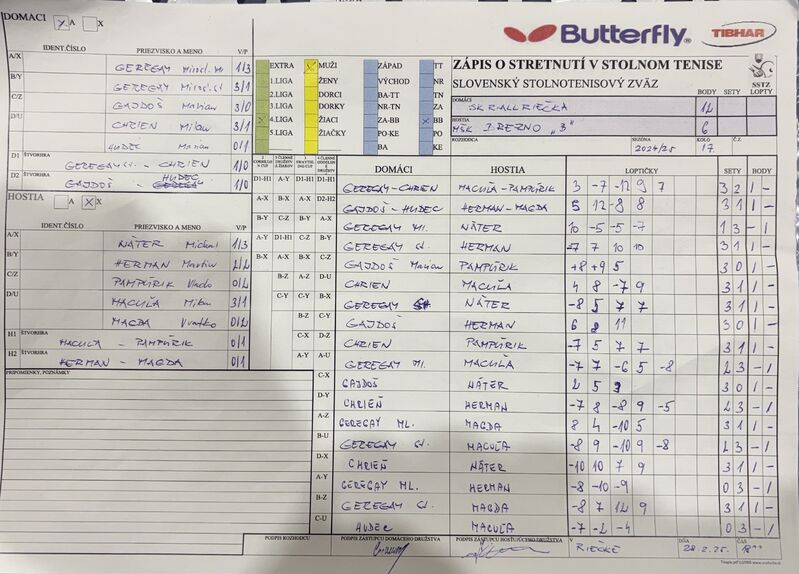 DOMÁCI
A X
IDENT.ČÍSLO PRIEZVISKO A MENO V/P
A/X GEREGAY 1/3
B/Y GEREGAY 3/1
C/Z GAJDOŠ Marian 3/0
D/U CHRIEN Milan 3/1
HUDEC Marian 0/1
D1 ŠTVORHRA GEREGAY - CHRIEN 1/0
D2 ŠTVORHRA GAJDOŠ - HUDEC 1/0
HOSTIA
A X
IDENT.ČÍSLO PRIEZVISKO A MENO V/P
A/X NÁTER Michal 1/3
B/Y HERMAN Martin 2/2
C/Z PAMPÚRIK Vlado 0/2
D/U MACUĽA Milan 3/1
MAGDA 0/2
H1 ŠTVORHRA MACUĽA - PAMPÚRIK 0/1
H2 ŠTVORHRA HERMAN - MAGDA 0/1
PRIPOMIENKY, POZNÁMKY
Butterfly
TIBHAR
EXTRA MUŽI ZÁPAD TT
1.LIGA ŽENY VÝCHOD NR
2.LIGA DORCI BA-TT TN
3.LIGA DORKY NR-TN ZA
4.LIGA ŽIACI ZA-BB BB
5.LIGA ŽIAČKY PO-KE PO
BA KE
ZÁPIS O STRETNUTÍ V STOLNOM TENISE
SLOVENSKÝ STOLNOTENISOVÝ ZVÄZ
SSTZ
BODY SETY LOPTY
DOMÁCI SK RIALL RIEČKA 12
HOSTIA MŠK BREZNO "B" 6
ROZHODCA SEZÓNA 2024/25 KOLO 17. Č.Z.
DOMÁCI HOSTIA LOPTIČKY SETY BODY
D1-H1 GEREGAY-CHRIEN MACUĽA-PAMPÚRIK 3 -7 -12 9 7 3 2 1 -
D2-H2 GAJDOŠ-HUDEC HERMAN-MAGDA 5 12 -8 8 3 1 1 -
GEREGAY Ml. NÁTER 10 -5 -5 -7 1 3 - 1
GEREGAY st. HERMAN -7 7 10 10 3 1 1 -
GAJDOŠ Marian PAMPÚRIK +8 +9 5 3 0 1 -
D-U CHRIEN MACUĽA 4 8 -7 9 3 1 1 -
B-X GEREGAY st. NÁTER -8 5 7 7 3 1 1 -
C-Y GAJDOŠ HERMAN 6 8 11 3 0 1 -
D-Z CHRIEN PAMPÚRIK -7 5 7 7 3 1 1 -
A-U GEREGAY Ml. MACUĽA -7 7 -6 5 -8 2 3 - 1
C-X GAJDOŠ NÁTER 2 5 9 3 0 1 -
D-Y CHRIEŇ HERMAN -7 8 -8 9 -5 2 3 - 1
A-Z GEREGAY ML. MAGDA 8 4 -10 5 3 1 1 -
B-U GEREGAY st. MACUĽA -8 9 -10 9 -8 2 3 - 1
D-X CHRIEŇ NÁTER -10 10 7 9 3 1 1 -
A-Y GEREGAY ML. HERMAN -8 -10 -9 0 3 - 1
B-Z GEREGAY st. MAGDA -8 7 12 9 3 1 1 -
C-U HUDEC MACUĽA -7 -2 -4 0 3 - 1
PODPIS ROZHODCU PODPIS ZÁSTUPCU DOMÁCEHO DRUŽSTVA PODPIS ZÁSTUPCU HOSŤUJÚCEHO DRUŽSTVA V RIEČKE DŇA 28.2.25. ČAS 18°°